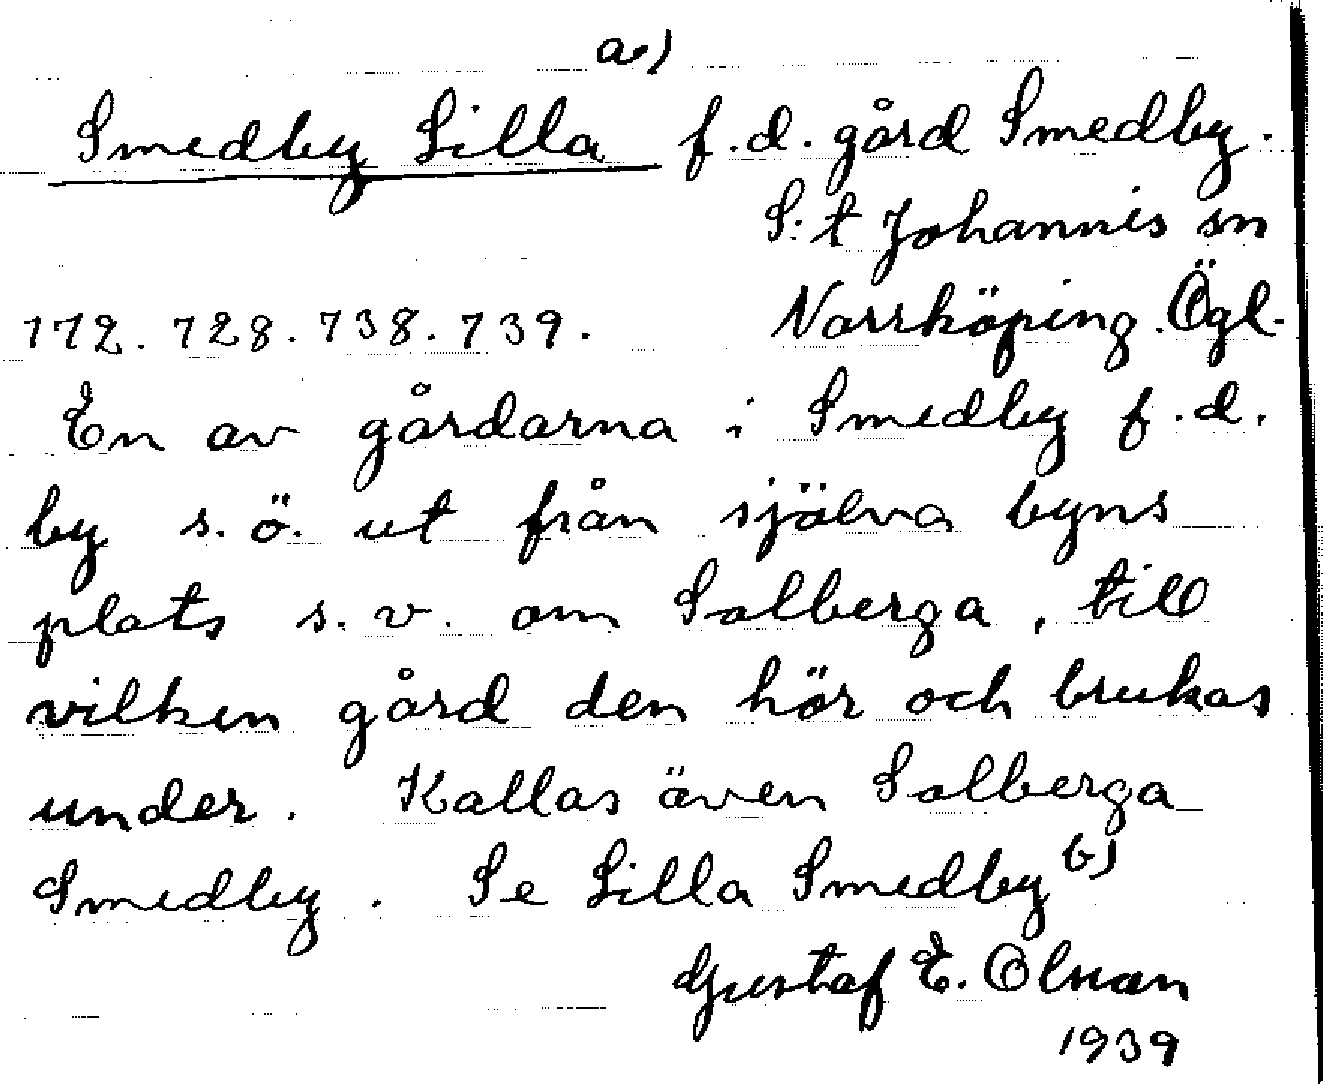 a)
Smedby Lilla f.d. gård Smedby.
S:t Johannis sn
172. 728. 738. 739. Norrköping. Ögl.
En av gårdarna i Smedby f.d.
by s.ö. ut från själva byns
plats s.v. om Solberga, till
vilken gård den hör och brukas
under. Kallas även Solberga
Smedby. Se Lilla Smedby b)
Gustaf E. Olsson
1939